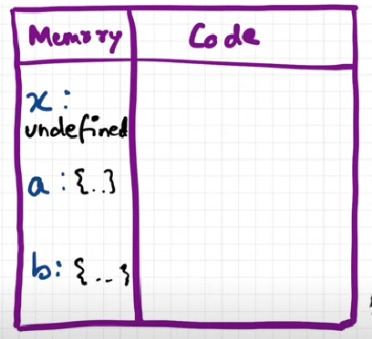 Memory Code
x :
undefined
a : {..}
b: {...}